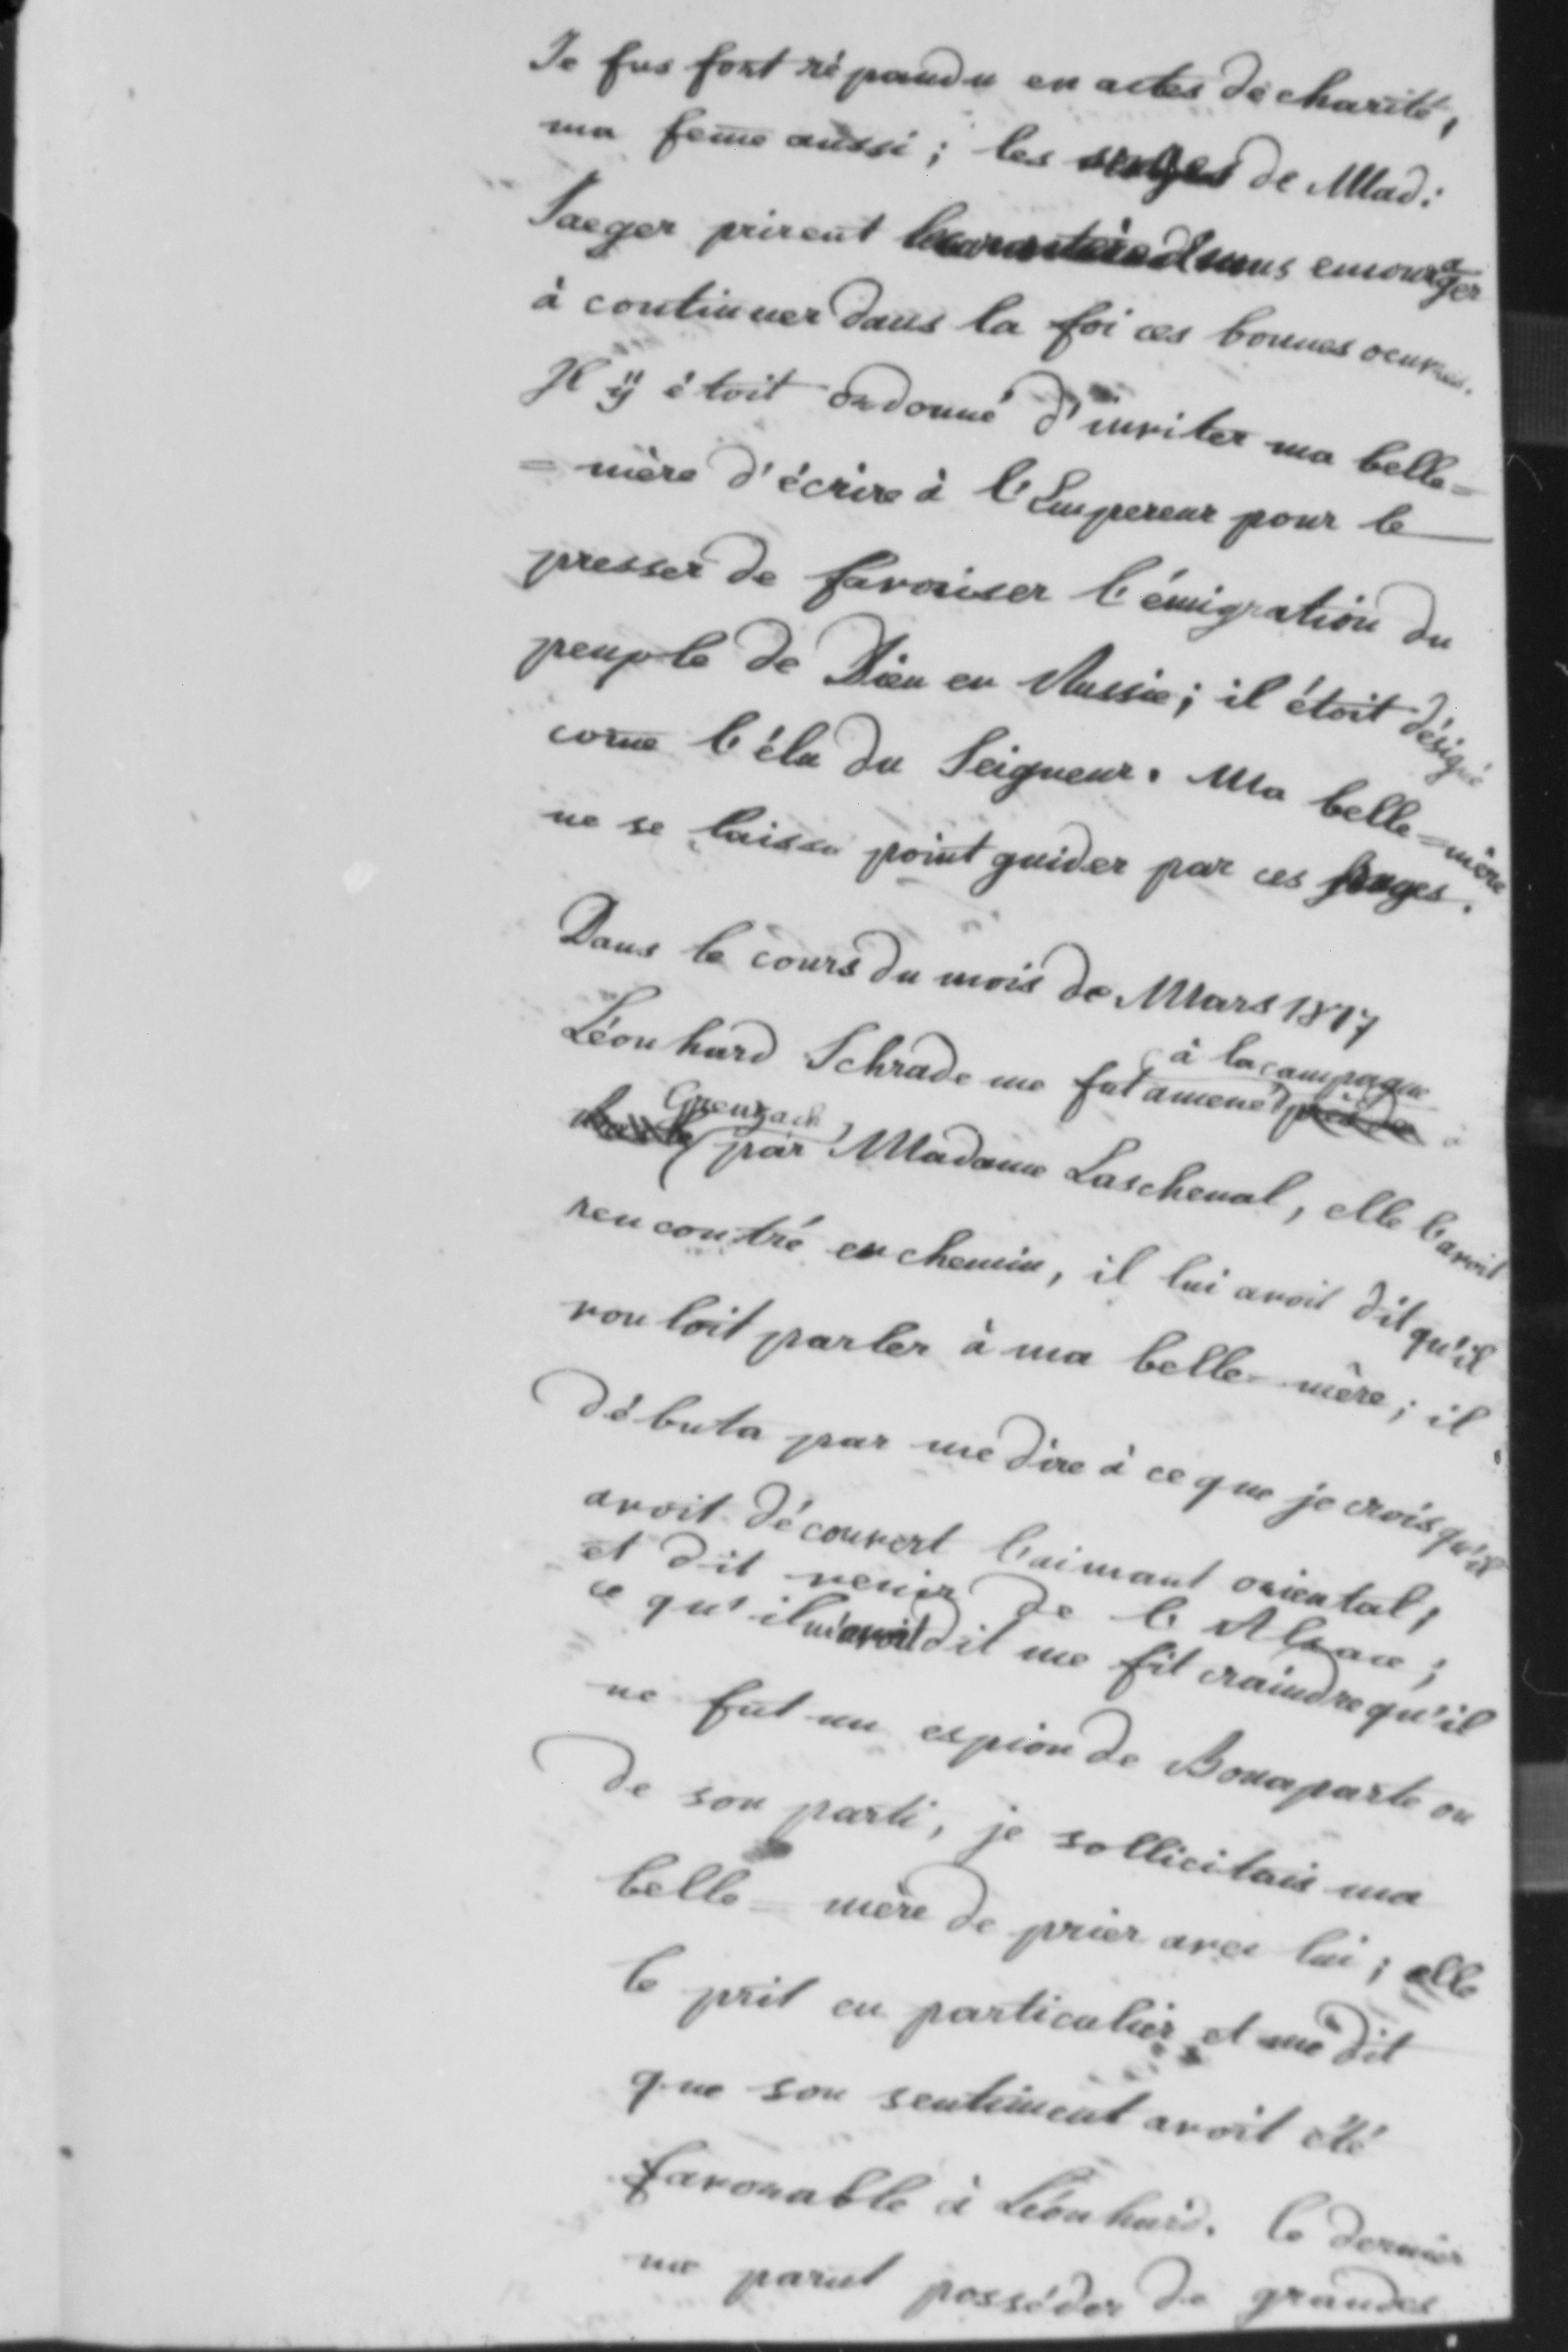 Je fus fort répandu en actes de charité,
ma feme aussi; les songes de Mad:
Jaeger prirent le caractère de nous encourager
à continuer dans la foi ces bonnes oeuvres.
Il ÿ étoit ordonné d'inviter ma belle=
=mère d'écrire à l'Empereur pour le
presser de favoriser l'émigration du
peuple de Dieu en Russie; il étoit désigné
come l'élu du Seigneur. Ma belle=mère
ne se laissa point guider par ces songes.
Dans le cours du mois de Mars 1817
Léonhard Schrade me fut amené à la campagne près de
Grenzach par Madame Laschenal, elle l'avoit
rencontré en chemin, il lui avoit dit qu'il
vouloit parler à ma belle-mère; il
débuta par me dire à ce que je crois qu'il
avoit découvert l'aimant oriental,
et dit venir de l'Alsace;
ce qu'il m'avoit dit me fit craindre qu'il
ne fut un espion de Bonaparte ou
de son parti, je sollicitais ma
belle=mère de prier avec lui; elle
le prit en particulier et me dit
que son sentiment avoit été
favorable à Léonhard. le dernier
me parut posséder de grandes